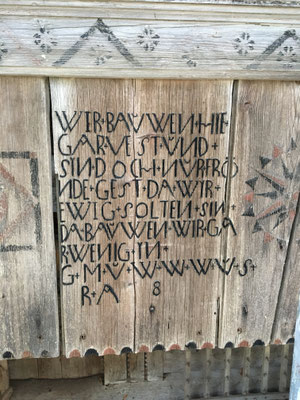 WIR·BAŪWEN·HIE·
GAR·VEST·ŪND·
SIND·OCH·NŪR·FRÖ
NDE·GEST·DA·WIR·
EWIG·SOLTEN·SIN·
DA·BAŪWEN·WIR·GA
R·WENIG·IN·
G·M·Ū·W·W·W·S·
R·A 8